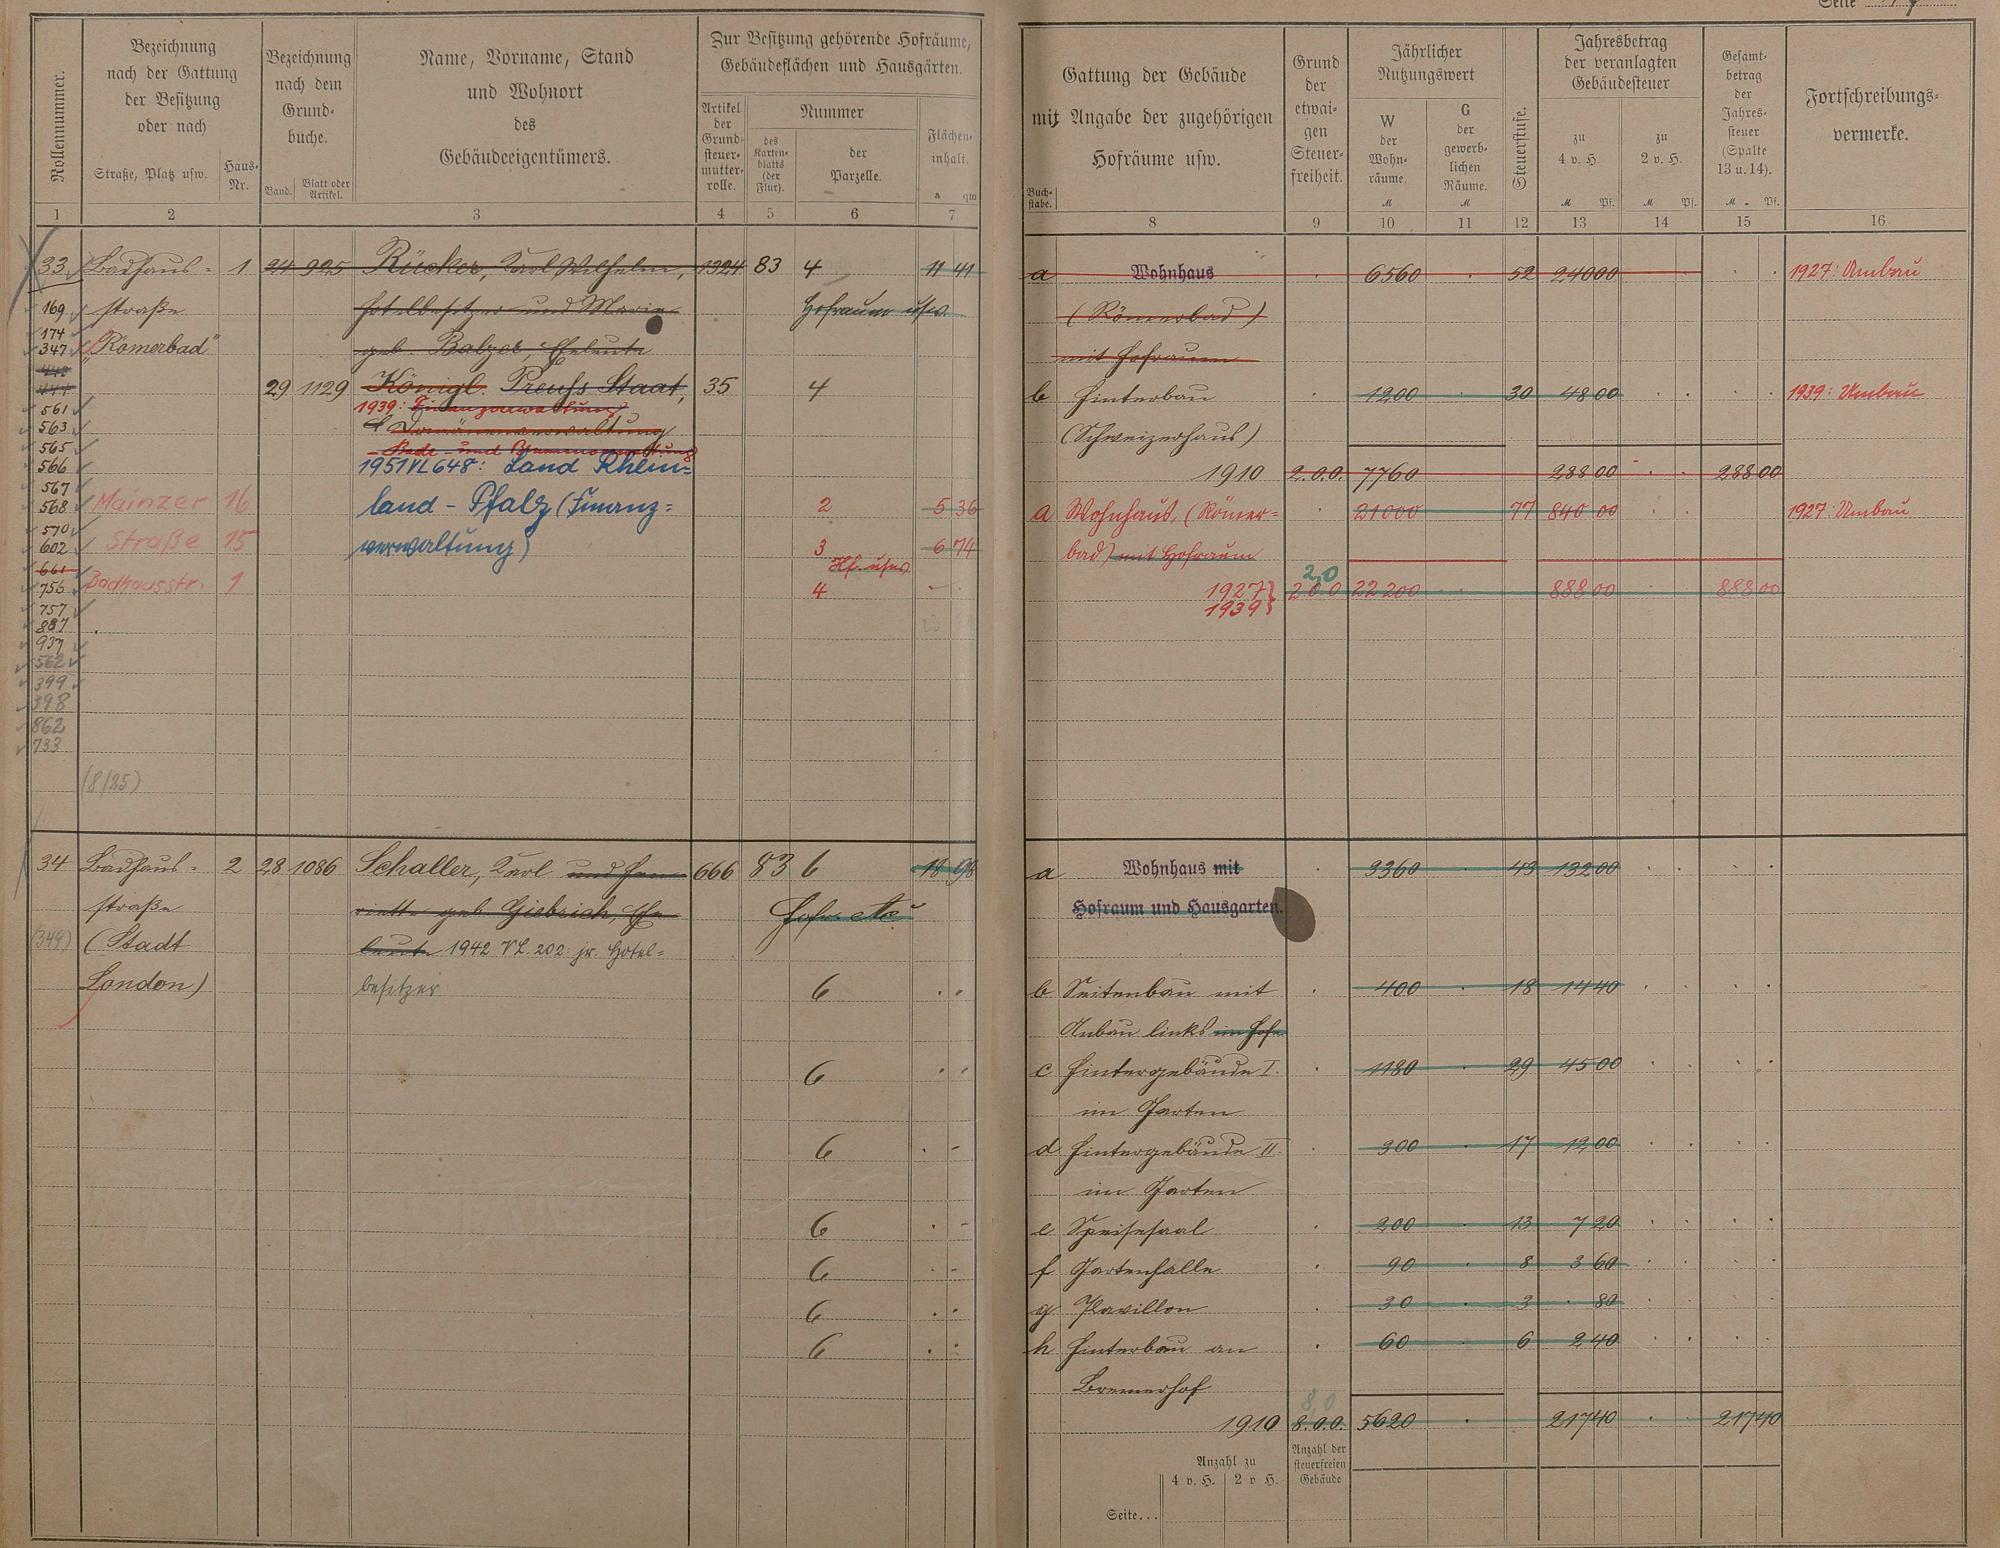 Seite
Rollennummer.
Bezeichnung
nach der Gattung
der Besitzung
oder nach
Straße, Platz usw.
Haus-
Nr.
Bezeichnung
nach dem
Grund-
buche.
Band.
Blatt oder
Artikel.
Name, Vorname, Stand
und Wohnort
des
Gebäudeeigentümers.
Zur Besitzung gehörende Hofräume,
Gebäudeflächen und Hausgärten.
Artikel
der
Grund-
steuer-
mutter-
rolle.
Nummer
des
Karten-
blatts
(der
Flur).
der
Parzelle.
Flächen-
inhalt.
a qm
1 2 3 4 5 6 7
33 Badhaus- 1 24 925 Rücker, Karl Wilhelm, 1324 83 4 11 41
169 straße Hotelbesitzer und Marie Hofraum usw.
174
347 "Römerbad" geb. Balzer, Eheleute
29 1129 Königl. Preuss Staat, 35 4
561 1939: Finanzverwaltung
563 Domänenverwaltung
565 Bade- und Brunnenverwaltung
566 1951 VL 648: Land Rhein-
567
568 Mainzer 16 land-Pfalz (Finanz- 2 5 36
570
602 Straße 15 verwaltung) 3 6 74
661 Hf. usw.
756 Badhausstr. 1 4
757
887
937
562
399
398
862
733
(8/25)
34 Badhaus- 2 28 1086 Schaller, Karl und Hen- 666 83 6 18 98
straße riette geb. Giebrich, Ehe-
(349) (Stadt leute 1942 VL. 202: jr. Hotel-
London) besitzer 6
6
6
6
6
6
6
Gattung der Gebäude
mit Angabe der zugehörigen
Hofräume usw.
Buch-
stabe.
Grund
der
etwai-
gen
Steuer-
freiheit.
Jährlicher
Nutzungswert
W
der
Wohn-
räume.
M
G
der
gewerb-
lichen
Räume.
M
Steuerstufe.
Jahresbetrag
der veranlagten
Gebäudesteuer
zu
4 v. H.
M Pf.
zu
2 v. H.
M Pf.
Gesamt-
betrag
der
Jahres-
steuer
(Spalte
13 u. 14).
M Pf.
Fortschreibungs-
vermerke.
8 9 10 11 12 13 14 15 16
a Wohnhaus 6560 52 240 00 1927: Umbau
(Römerbad)
mit Hofraum
b Hinterbau 1200 30 48 00 1939: Umbau
(Schweizerhaus)
1910 2.0.0. 7760 288 00 288 00
a Wohnhaus, (Römer- 21000 77 840 00 1927: Umbau
bad) mit Hofraum
2,0
1927} 2 0 0 22 200 888 00 888 00
1939}
a Wohnhaus mit 3360 43 132 00
Hofraum und Hausgarten.
b Seitenbau mit 400 18 14 40
Anbau links im Hofe
c Hintergebäude I. 1180 29 45 00
im Garten
d Hintergebäude II. 300 17 12 00
im Garten
e Speisesaal 200 13 7 20
f Gartenhalle 90 8 3 60
g Pavillon 30 3 80
h Hinterbau an 60 6 2 40
Bremerhof
8,0
1910 8.0.0. 5620 217 40 217 40
Anzahl zu
4 v. H. 2 v H.
Anzahl der
steuerfreien
Gebäude
Seite...